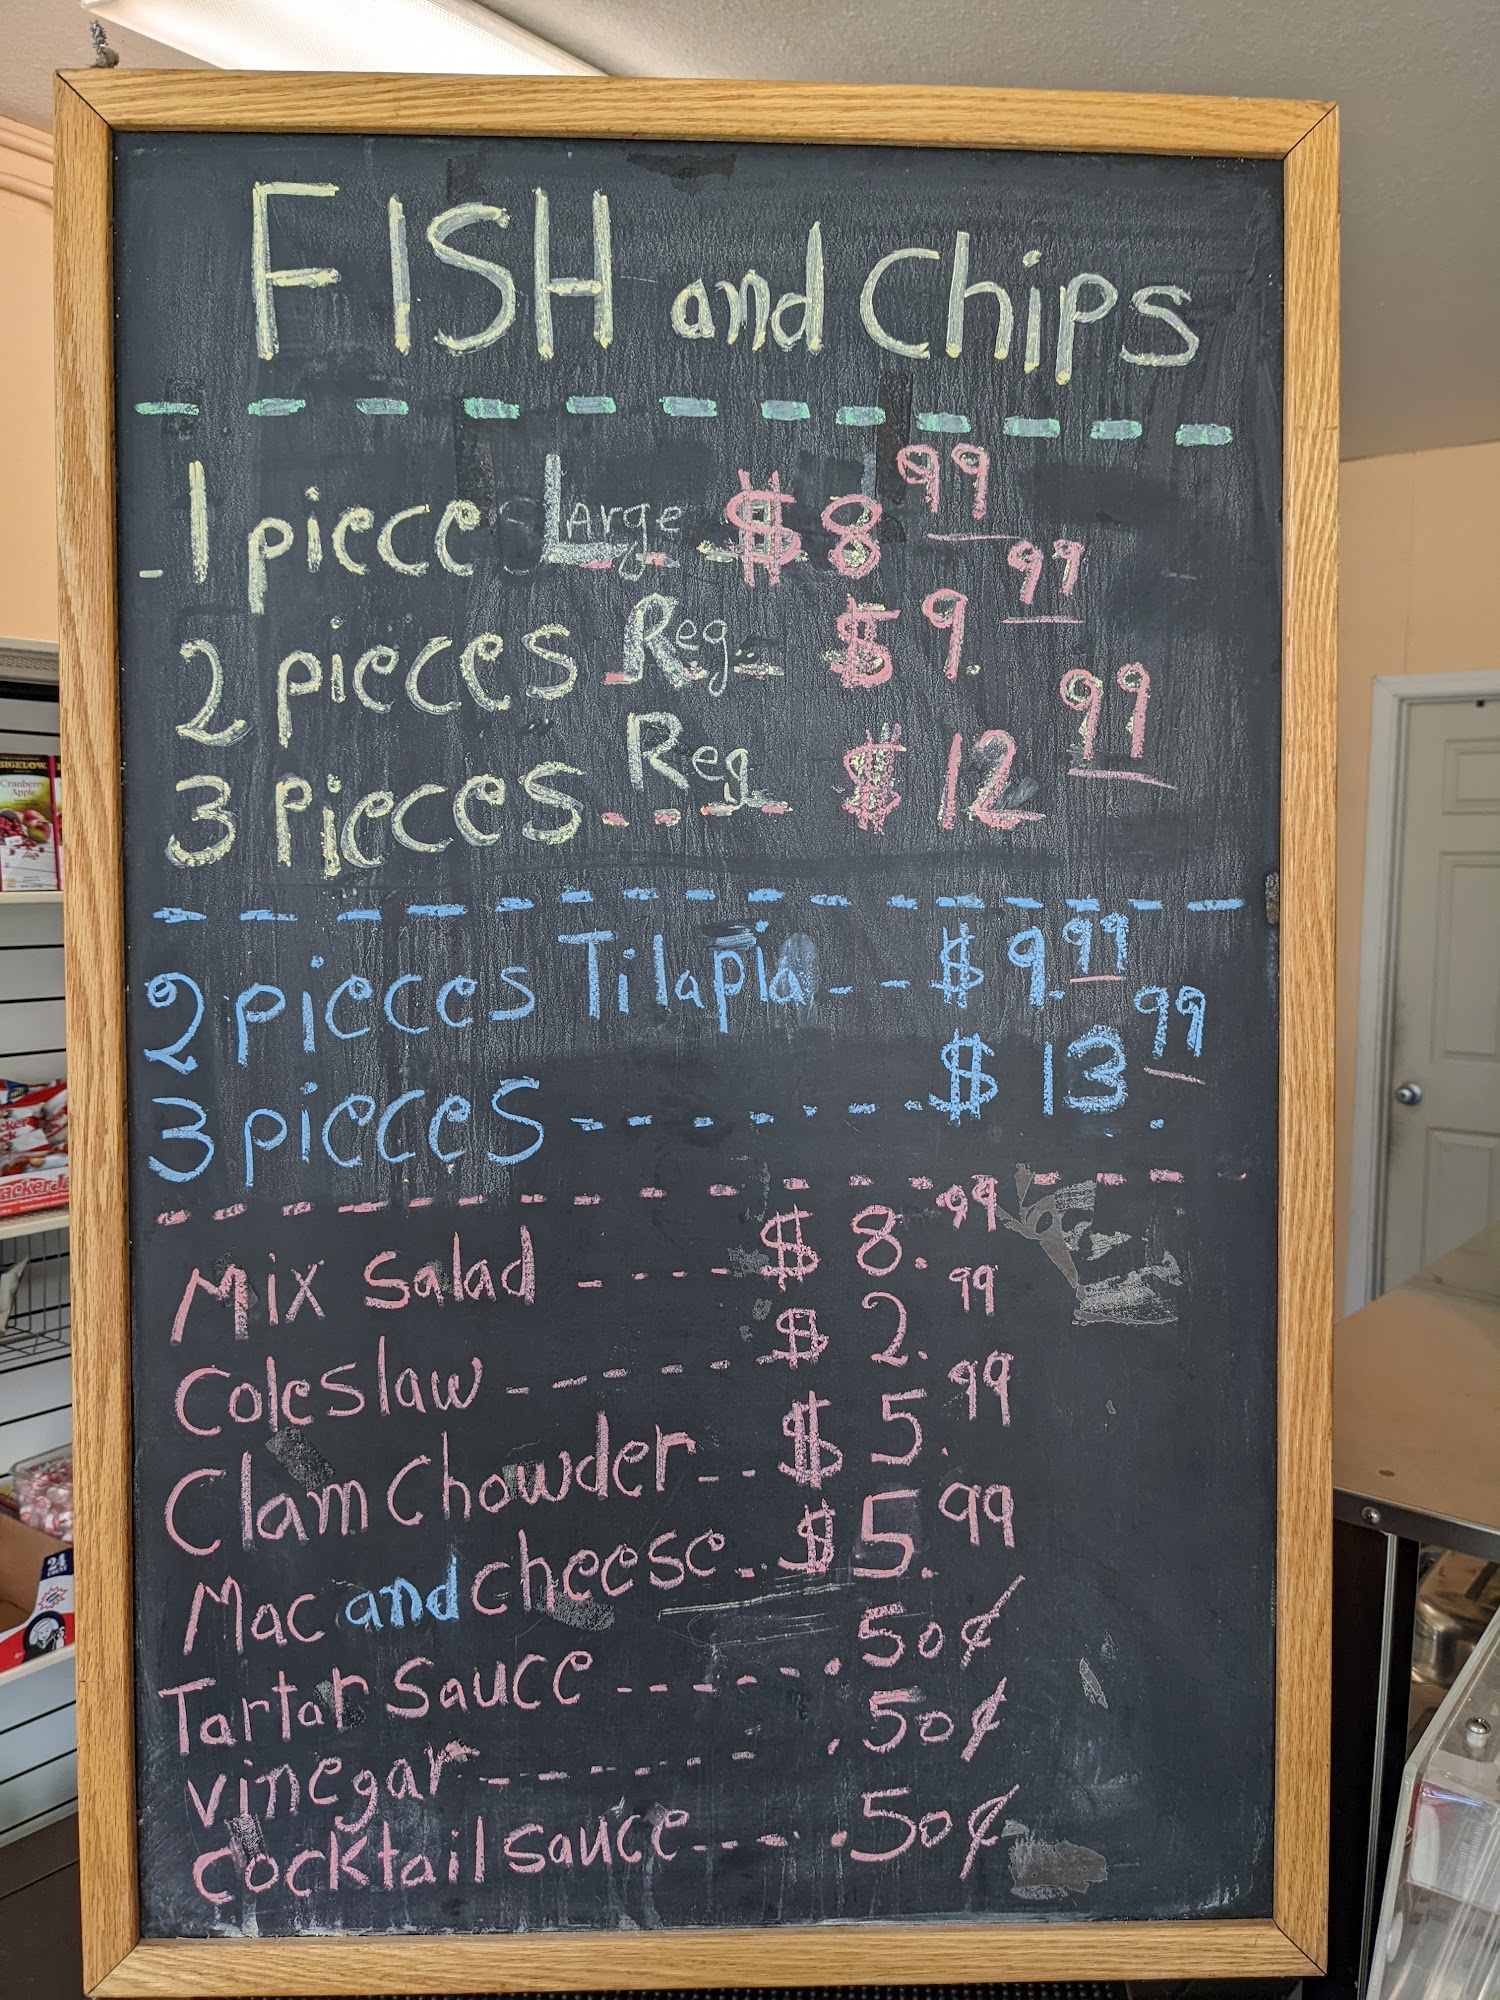 FISH and Chips
1 piece Large $8.99
2 pieces Reg $9.99
3 pieces Reg $12.99
2 pieces Tilapia $9.99
3 pieces $13.99
Mix Salad $8.99
Coleslaw $2.99
Clam Chowder $5.99
Mac and cheese $5.99
Tartar Sauce .50¢
vinegar .50¢
cocktail sauce .50¢
BIGELOW
Cranberry
Apple
24